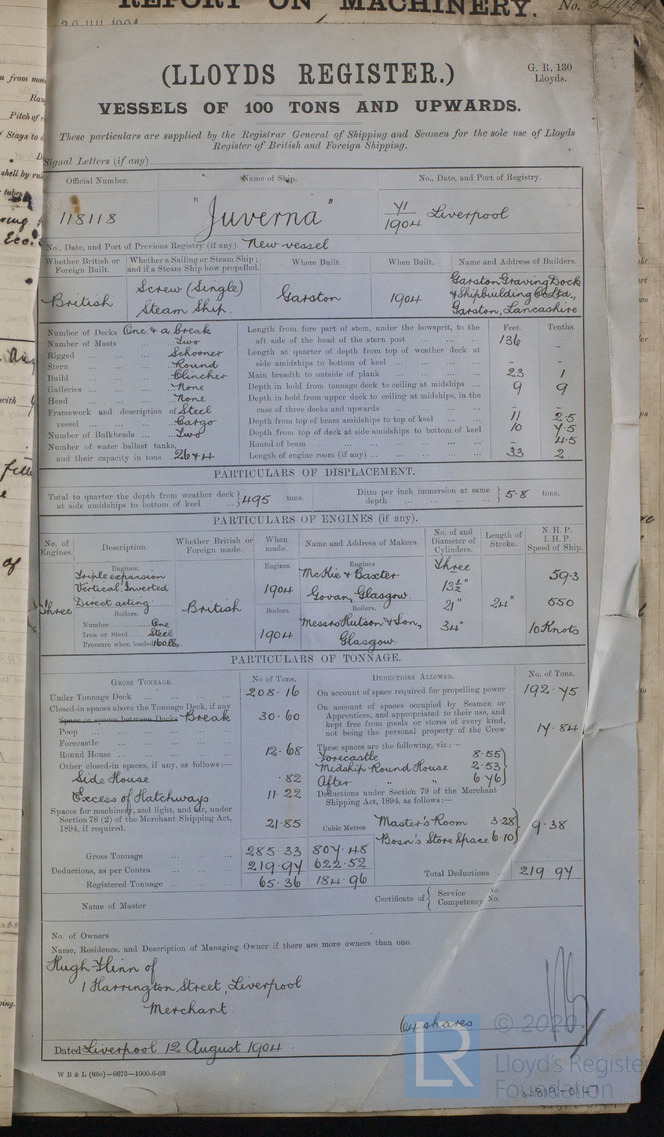 REPORT ON MACHINERY. No.
(LLOYDS REGISTER.)
G. R. 130
Lloyds.
VESSELS OF 100 TONS AND UPWARDS.
These particulars are supplied by the Registrar General of Shipping and Seamen for the sole use of Lloyds
Register of British and Foreign Shipping.
Signal Letters (if any)
Official Number. Name of Ship. No., Date, and Port of Registry.
118118 "Juverna" 71/1904 Liverpool
No., Date, and Port of Previous Registry (if any). New vessel
Whether British or Foreign Built. Whether a Sailing or Steam Ship; and if a Steam Ship how propelled. Where Built. When Built. Name and Address of Builders.
British Screw (Single) Steam Ship. Garston 1904 Garston Graving Dock & Shipbuilding Co Ltd., Garston, Lancashire
Number of Decks One & a break
Number of Masts Two
Rigged Schooner
Stern Round
Build Clincher
Galleries None
Head None
Framework and description of vessel Steel Cargo
Number of Bulkheads Two
Number of water ballast tanks, and their capacity in tons 2 & 44
Feet Tenths.
Length from fore part of stem, under the bowsprit, to the aft side of the head of the stern post 136 -
Length at quarter of depth from top of weather deck at side amidships to bottom of keel - -
Main breadth to outside of plank 23 1
Depth in hold from tonnage deck to ceiling at midships 9 9
Depth in hold from upper deck to ceiling at midships, in the case of three decks and upwards - -
Depth from top of beam amidships to top of keel 11 2.5
Depth from top of deck at side amidships to bottom of keel 10 7.5
Round of beam - 4.5
Length of engine room (if any) 33 2
PARTICULARS OF DISPLACEMENT.
Total to quarter the depth from weather deck at side amidships to bottom of keel 495 tons. Ditto per inch immersion at same depth 5.8 tons.
PARTICULARS OF ENGINES (if any).
No. of Engines. Description. Whether British or Foreign made. When made. Name and Address of Makers. No. of and Diameter of Cylinders. Length of Stroke. N. H. P. I. H. P. Speed of Ship.
Engines. Engines. Engines. Three
Triple expansion McKie & Baxter 59.3
Vertical Inverted 1904 Govan, Glasgow 13½"
Three Direct acting British 21" 24" 550
Boilers. Boilers. Boilers.
Number One Messrs Hutson & Son, 34" 10 Knots
Iron or Steel Steel 1904 Glasgow
Pressure when loaded 160 lb.
PARTICULARS OF TONNAGE.
GROSS TONNAGE. No of Tons.
Under Tonnage Deck 208.16
Closed-in spaces above the Tonnage Deck, if any
Space or spaces between Decks Break 30.60
Poop
Forecastle
Round House 12.68
Other closed-in spaces, if any, as follows:—
Side House .82
Excess of Hatchways 11.22
Spaces for machinery, and light, and air, under Section 78 (2) of the Merchant Shipping Act, 1894, if required. 21.85
Cubic Metres
Gross Tonnage 285.33 807.48
Deductions, as per Contra 219.97 622.52
Registered Tonnage 65.36 184.96
DEDUCTIONS ALLOWED. No. of Tons.
On account of space required for propelling power 192.75
On account of spaces occupied by Seamen or Apprentices, and appropriated to their use, and kept free from goods or stores of every kind, not being the personal property of the Crew 17.84
These spaces are the following, viz.:—
Forecastle 8.55
Midship Round House 2.53
After " " 6.76
Deductions under Section 79 of the Merchant Shipping Act, 1894, as follows:—
Master's Room 3.28
Bosn's Store Space 6.10 9.38
Total Deductions 219.97
Name of Master Certificate of Service No. Competency No.
No. of Owners
Name, Residence, and Description of Managing Owner if there are more owners than one.
Hugh Flinn of
1 Harrington Street, Liverpool
Merchant
64 shares
Dated Liverpool 12 August 1904
W B & L (83o)—6673—1000-6-03
LR © 2020
Lloyd's Register
Foundation
W819-0147